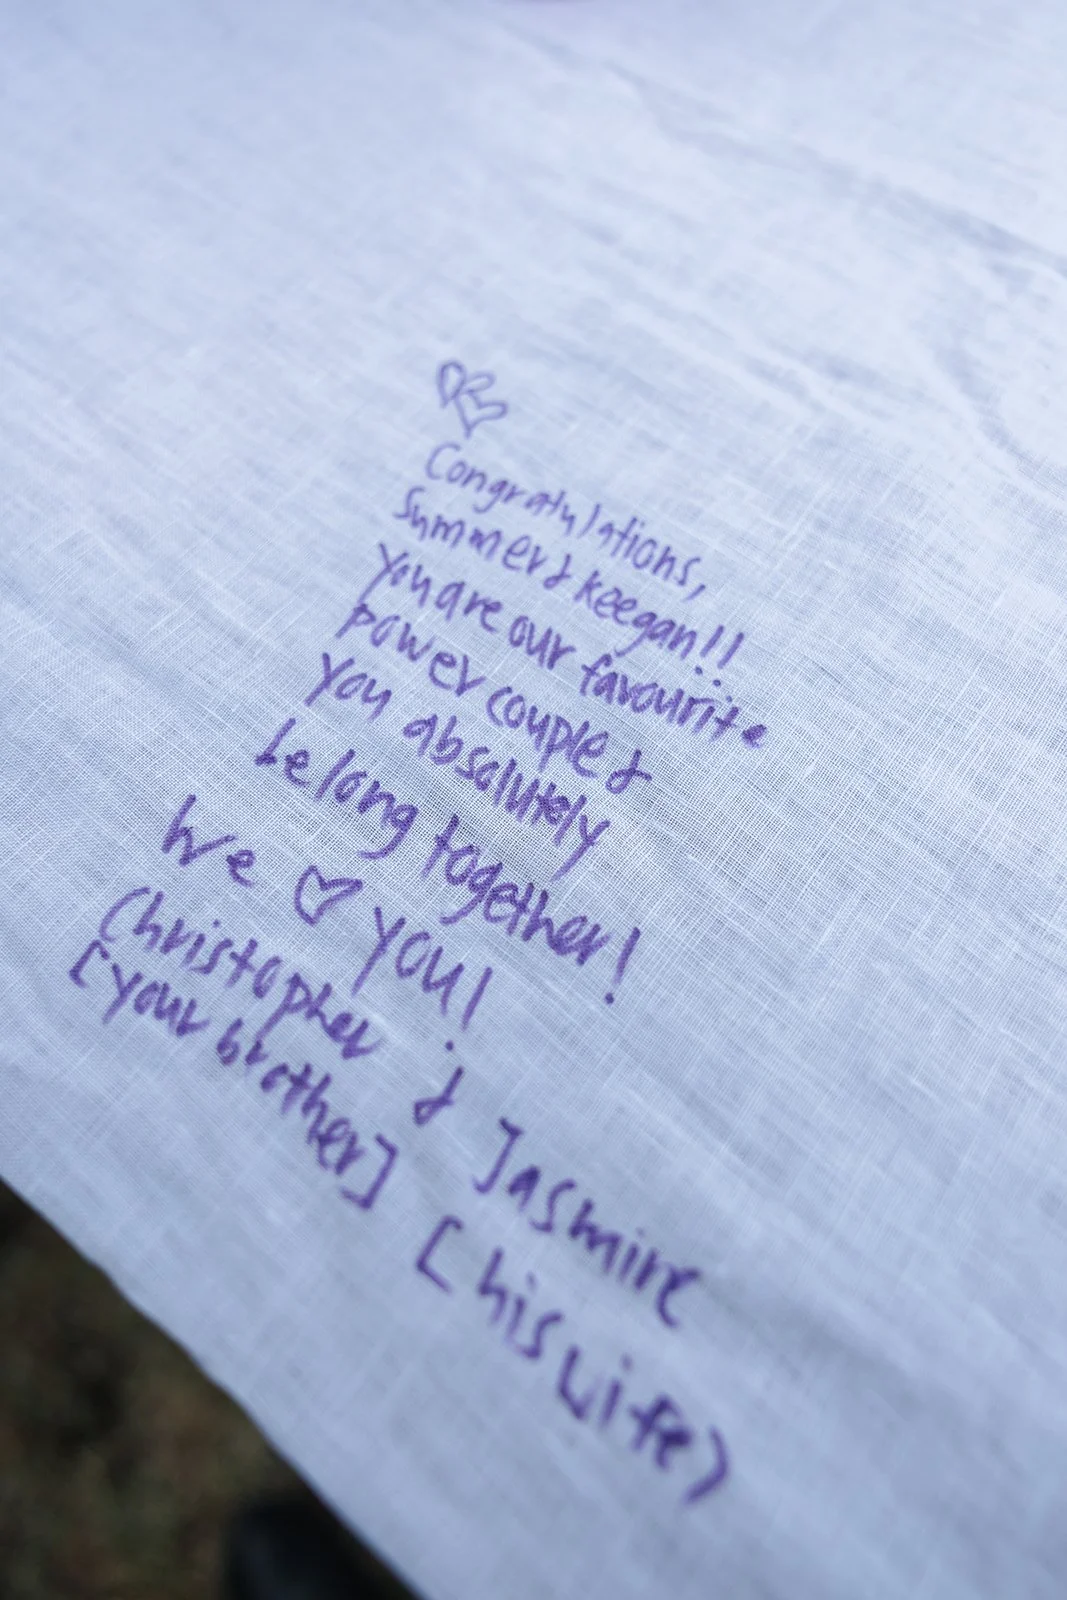 Congratulations,
Summer & keegan!!
You are our favourite
power couple &
you absolutely
belong together!
We ♡ you!
Christopher & Jasmine
[your brother] [his wife]